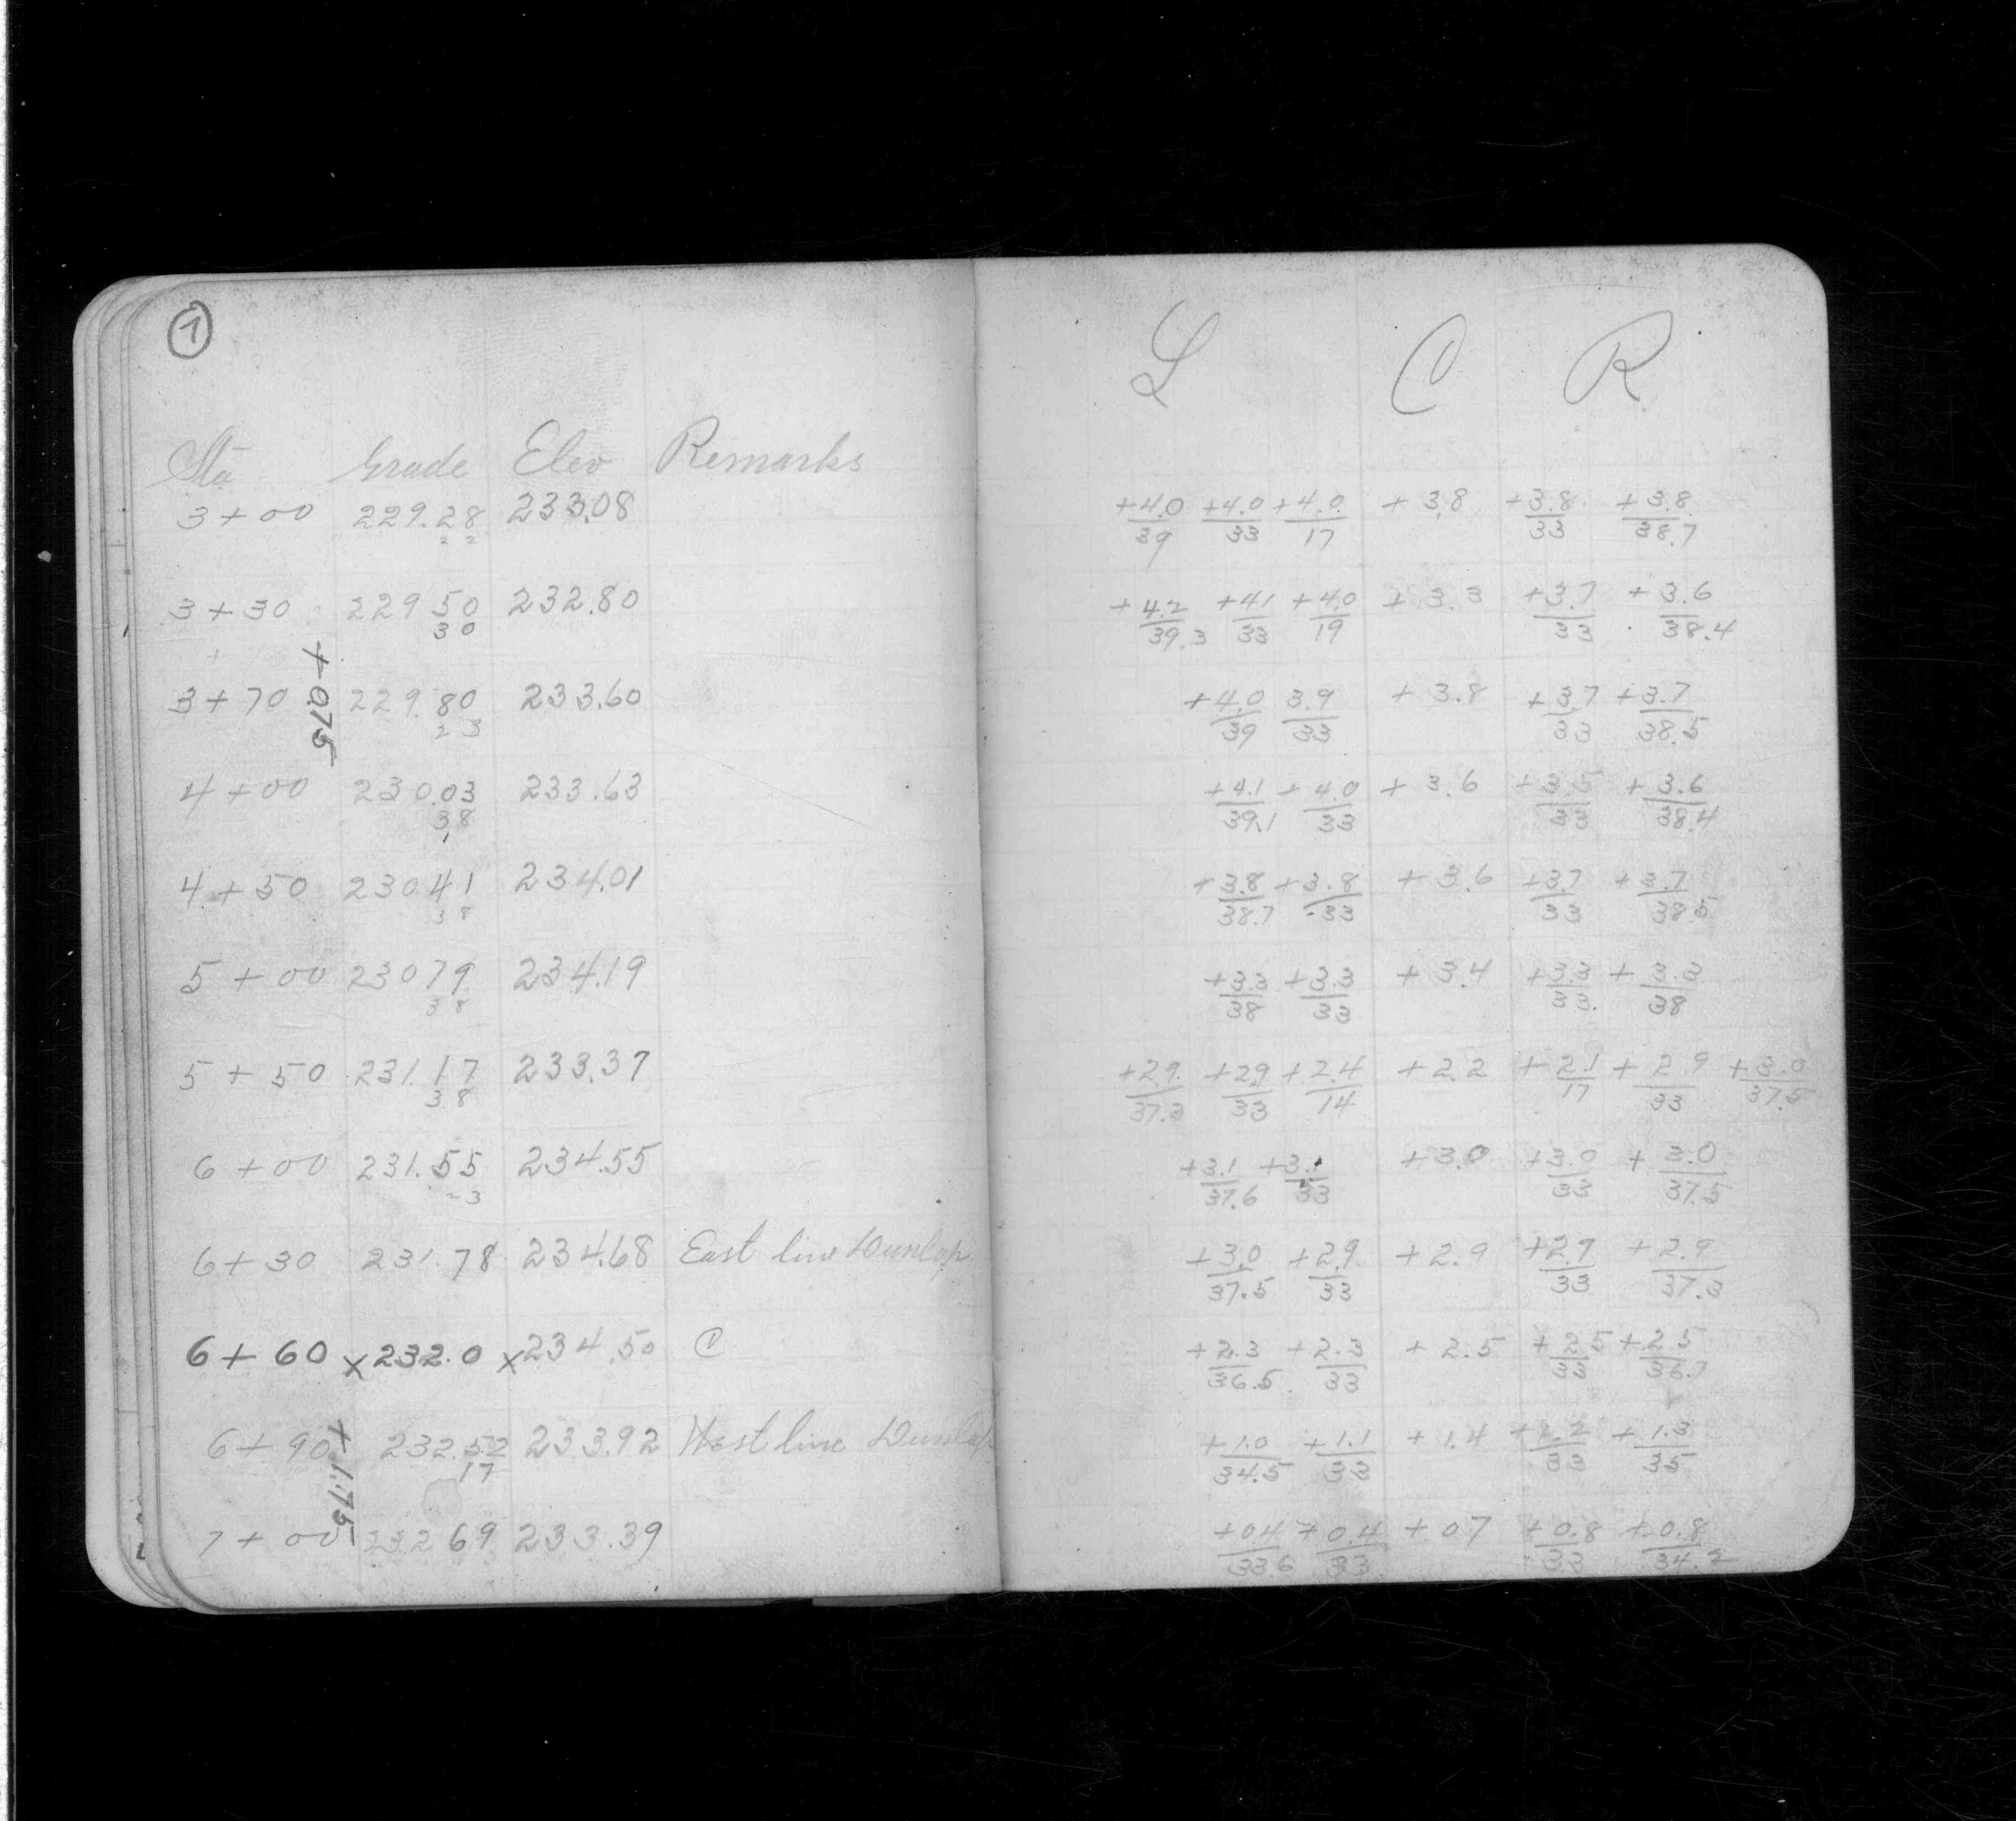 1
L C R
Sta Grade Elev Remarks
3+00 229.28 233.08 +4.0/39 +4.0/33 +4.0/17 +3.8 +3.8/33 +3.8/38.7
2 2
3+30 229 50 232.80 +4.2/39.3 +41/33 +4.0/19 +3.3 +3.7/33 +3.6/38.4
30
+0.75
3+70 229.80 233.60 +4.0/39 3.9/33 +3.8 +3.7/33 +3.7/38.5
2 3
4+00 230.03 233.63 +4.1/39.1 +4.0/33 +3.6 +3.5/33 +3.6/38.4
38
4+50 230 41 234.01 +3.8/38.7 +3.8/33 +3.6 +3.7/33 +3.7/38.5
38
5+00 230 79 234.19 +3.3/38 +3.3/33 +3.4 +3.3/33 +3.3/38
38
5+50 231.17 233.37 +2.9/37.3 +2.9/33 +2.4/14 +2.2 +2.1/17 +2.9/33 +3.0/37.5
38
6+00 231.55 234.55 +3.1/37.6 +3.1/33 +3.0 +3.0/33 +3.0/37.5
6+30 231.78 234.68 East line Dunlap +3.0/37.5 +2.9/33 +2.9 +2.9/33 +2.9/37.3
6+60 x232.0 x234.50 C +2.3/36.5 +2.3/33 +2.5 +2.5/33 +2.5/36.7
6+90 232.52 233.92 West line Dunlap +1.0/34.5 +1.1/33 +1.4 +1.2/33 +1.3/35
17
+1.75
7+00 232 69 233.39 +04/33.6 +0.4/33 +07 +0.8/33 +0.8/34.2